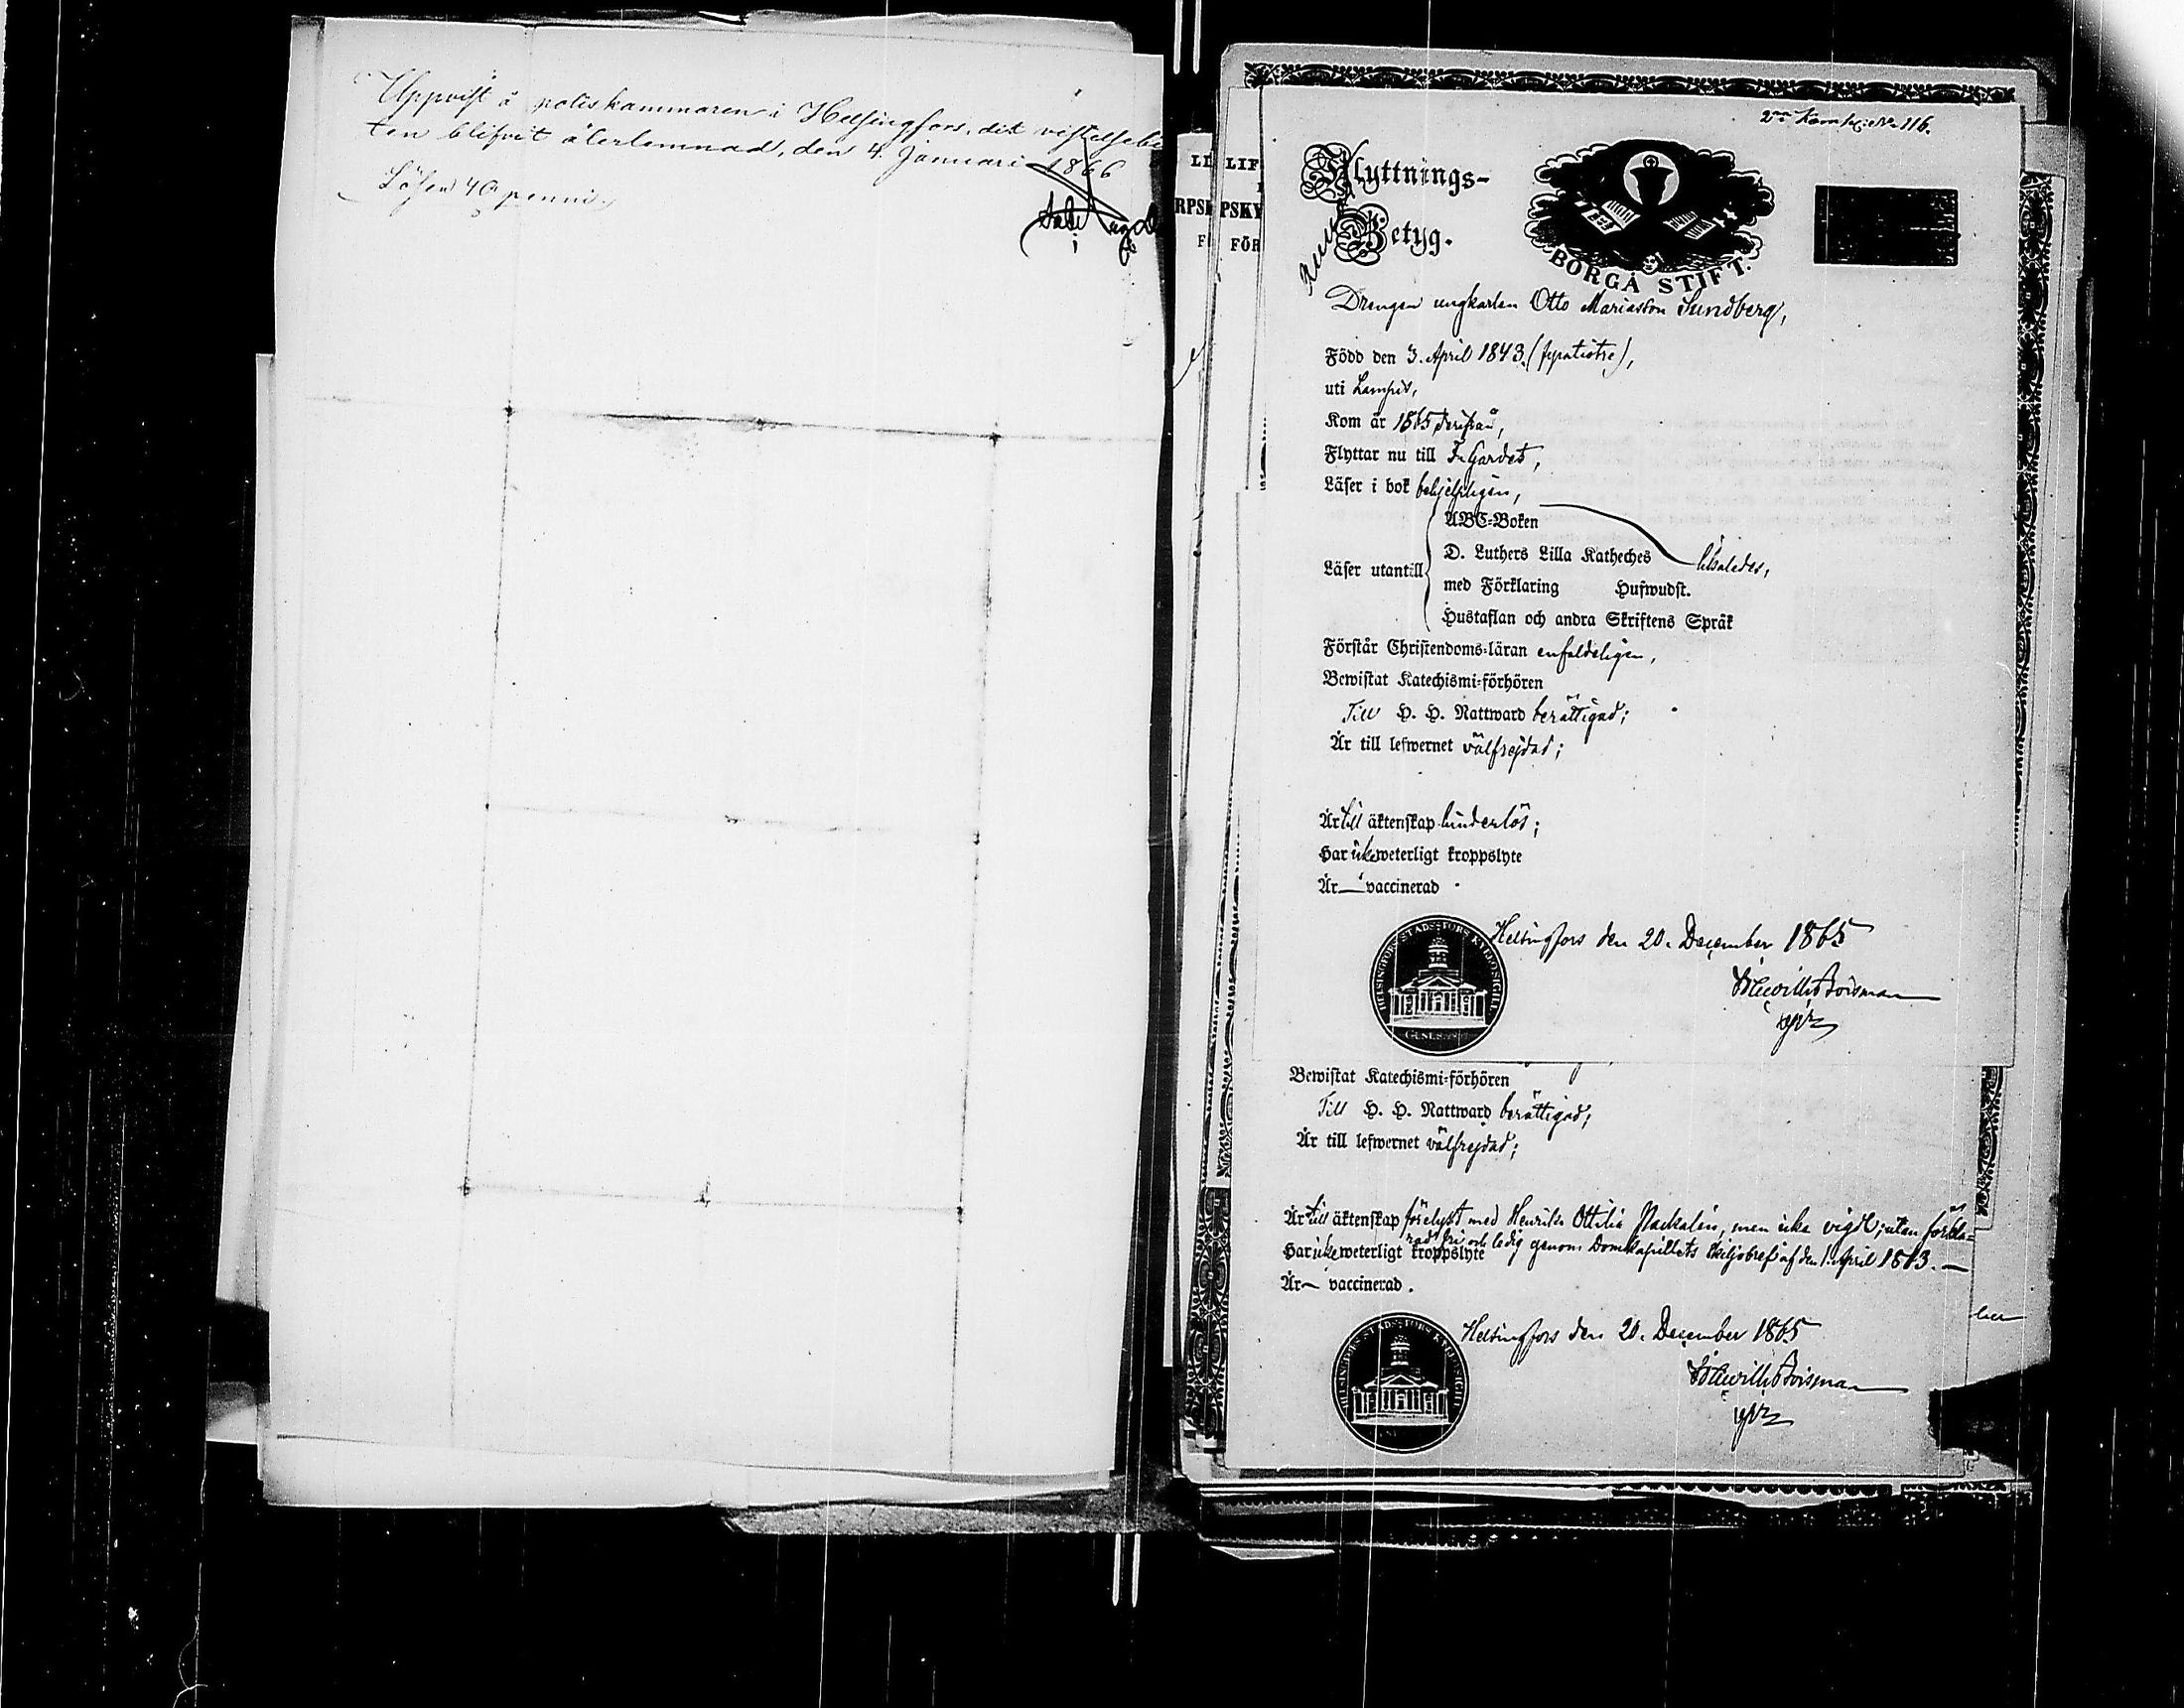 Uppvist å poliskammaren i Helsingfors, dit vistelsebe
ten blifvit återlemnad, den 4 Januari 1866
Lösen 40 penni.
LI LIF
RPSK PSKY
FÖR
2dra Komp. No 116.
Flyttnings-
Betyg.
BORGÅ STIFT.
Drengen ungkarlen Otto Mariasson Sundberg,
Född den 3. April 1843.
uti Lampis,
Kom år 1865 derifrån,
Flyttar nu till F. Gardet,
Läser i bok behjelpligen,
ABC-Boken
D. Luthers Lilla Katheches likaledes,
Läser utantill
med Förklaring Hufwudst.
Hustaflan och andra Skriftens Språk
Förstår Christendoms-läran enfaldeligen,
Bewistat Katechismi-förhören
Till H. H. Nattward berättigad;
Är till lefwernet välfrejdad;
Är till äktenskap hinderlös;
Har icke weterligt kroppslyte
Är — vaccinerad
HELSINGFORS STADSFÖRS KYRKOSIGILL
Helsingfors den 20. December 1865
Bewistat Katechismi-förhören
Till H. H. Nattward berättigad;
Är till lefwernet välfrejdad;
Är till äktenskap förelyst med Henrika Ottilia Nackalin, men icke vigd; utan förkla-
rad fri och ledig genom Domkapitlets skiljobref af den 1. April 1863. —
Har icke weterligt kroppslyte
Är — vaccinerad.
Helsingfors den 20. December 1865